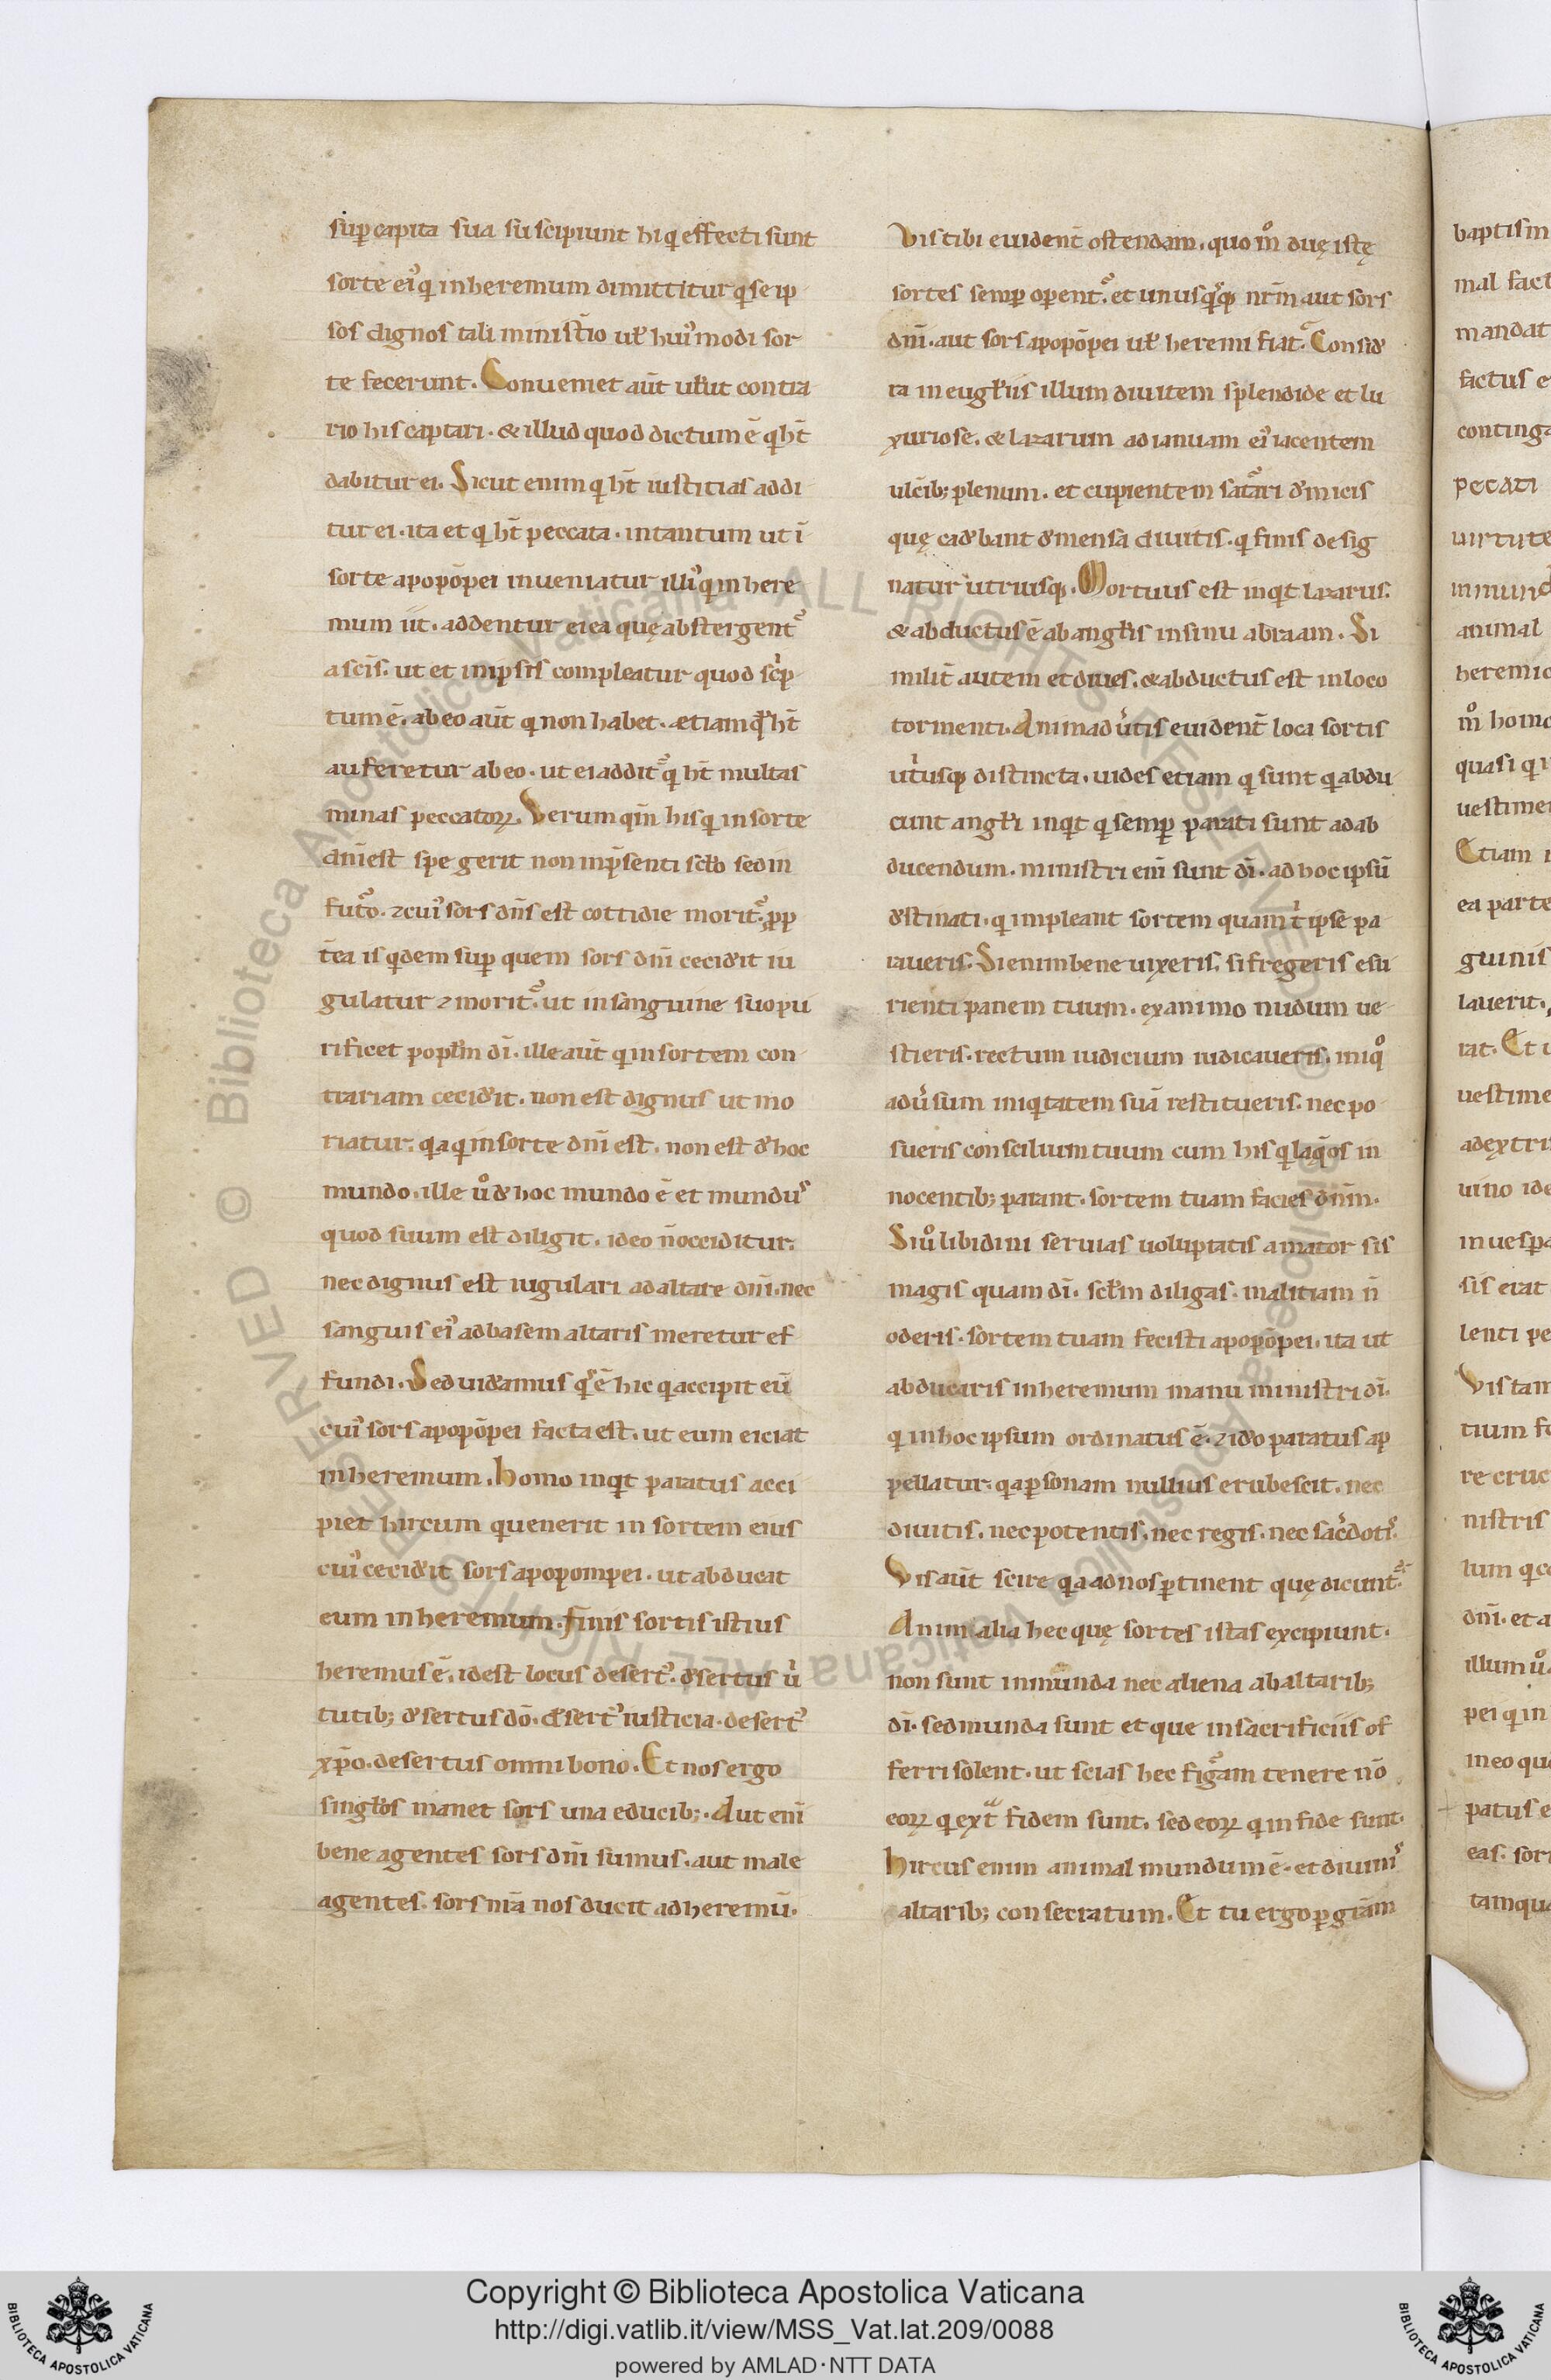 sup capita sua suscipiunt hi q̇ effecti sunt
sorte ei᾿ q̇ in heremum dimittitur q̇ se ip
sos dignos tali minist̄io ut̵ hui᾿modi sor
te fecerunt. Conueniet aūt ut̵ut contra
rio his captari. & illud quod dictum ē q̇ ht̄
dabitur ei. Sicut enim q̇ ht̄ iustitias addi
tur ei. ita et q̇ ht̄ peccata. intantum ut ī
sorte apopōpei inueniatur illi᾿ q̇ in here
mum iit. addentur ei ea quę abstergent᾿
a scīs. ut et in ip̄sis compleatur quod sc̓p
tum ē. ab eo aūt q̇ non habet. etiam qḋ ht̄
auferetur ab eo. ut ei addit᾿ q̇ ht̄ multas
minas peccatoꝝ. Verum qm̄ his q̇ in sorte
dn̄i est spe gerit non in p̄senti sc̄lo sed in
fut᾿o. ⁊ cui᾿ sors dn̄s est cottidie morit᾿. prop
t̄ea is q̇dem sup quem sors dn̄i cecid̓it iu
gulatur ⁊ morit᾿. ut in sanguine suo pu
rificet popłm dī. ille aūt q̇ in sortem con
trariam cecid̓it. non est dignus ut mo
riatur. q̇a q̇ in sorte dn̄i est. non est d̓ hoc
mundo. ille ůo d̓ hoc mundo ē et mund᾿
quod suum est diligit. ideo n̄ occiditur.
nec dignus est iugulari ad altare dn̄i. nec
sanguis ei᾿ ad basem altaris meretur ef
fundi. Sed uideamus q̇s ē hic q̇ accipit eū
cui᾿ sors apopōpei facta est. ut eum eiciat
in heremum. homo inq̇t paratus acci
piet hircum q̇ uenerit in sortem eius
cui᾿ cecid̓it sors apopompei. ut abducat
eum in heremum. Finis sortis istius
heremus ē. id est locus desert᾿. d̓sertus uir
tutib; d̓sertus dō. d̓sert᾿ iusticia. desert᾿
xp̄o. desertus omni bono. Et nos ergo
singłos manet sors una e ducib;. Aut eni᾿
bene agentes sors dn̄i sumus. aut male
agentes. sors nr̄a nos ducit ad heremū.
Vis tibi euident̄ ostendam. quo m̊ duę istę
sortes semp opent᾿. et unusq̇sq; nr̄m aut sors
dn̄i. aut sors apopōpei ut̵ heremi fiat. Consid̓
ra in eugłiis illum diuitem splendide et lu
xuriose. & lazarum ad ianuam ei᾿ iacentem
ulc̄ib; plenum. et cupientem sat᾿ari d̓ micis
quę cad̓bant d̓ mensa diuitis. q̇ finis desig
natur utriusq;. Mortuus est inq̇t lazarus.
& abductus ē ab angłis in sinu abraam. Si
milit̄ autem et diues. & abductus est in loco
tormenti. Animadu̓tis euident̄ loca sortis
ut̓usq; distincta. uides etiam q̇ sunt q̇ abdu
cunt angłi inq̇t q̇ semp parati sunt ad ab
ducendum. ministri eni᾿ sunt dī. ad hoc ipsū
d̓stinati. q̇ impleant sortem quam t̓ ipse pa
raueris. Si enim bene uixeris. si fregeris esu
rienti panem tuum. ex animo nudum ue
stieris. rectum iudicium iudicaueris. iniq̊
adu̓sum iniq̇tatem suā restitueris. nec po
sueris conscilium tuum cum his q̇ laq̄os in
nocentib; parant. sortem tuam facies dn̄m.
Si ůo libidini seruias uoluptatis amator sis
magis quam dī. sc̄łm diligas. malitiam n̄
oderis. sortem tuam fecisti apopōpei. ita ut
abducaris in heremum manu ministri dī.
q̇ in hoc ipsum ordinatus ē. ⁊ id̓o paratus ap
pellatur. q̇a psonam nullius erubescit. nec
diuitis. nec potentis. nec regis. nec sac̓doti᾿.
Vis aūt scire q̇a ad nos ptinent quę dicunt᾿.
Animalia hec quę sortes istas excipiunt.
non sunt inmunda nec aliena ab altarib;
dī. sed munda sunt et que in sacrificiis of
ferri solent. ut scias hec fig᾿am tenere nō
eoꝝ q̇ ext̄ fidem sunt. sed eoꝝ q̇ in fide sunt.
hircus enim animal mundum ē. et diuini᾿
altarib; consecratum. Et tu ergo p gr̄am
baptism
mal fact
mandat
factus e
continga
pecati
uirtute
inmund
animal
heremio
m̊ homo
quasi q̇
uestime
Etiam
ea parte
guinis
lauerit.
rat. Et
uestime
ad extri
uino ide
in uespa
sis erat
lenti pe
Vis tam
tium fo
re cruc
nistris
lum q̇
dn̄i. et a
illum ů
pei q̇ in
in eo qu
patus e
eas. sor
tamqua
Copyright © Biblioteca Apostolica Vaticana
http://digi.vatlib.it/view/MSS_Vat.lat.209/0088
powered by AMLAD·NTT DATA
BIBLIOTECA APOSTOLICA VATICANA
BIBLIOTECA APOSTOLICA VATICANA